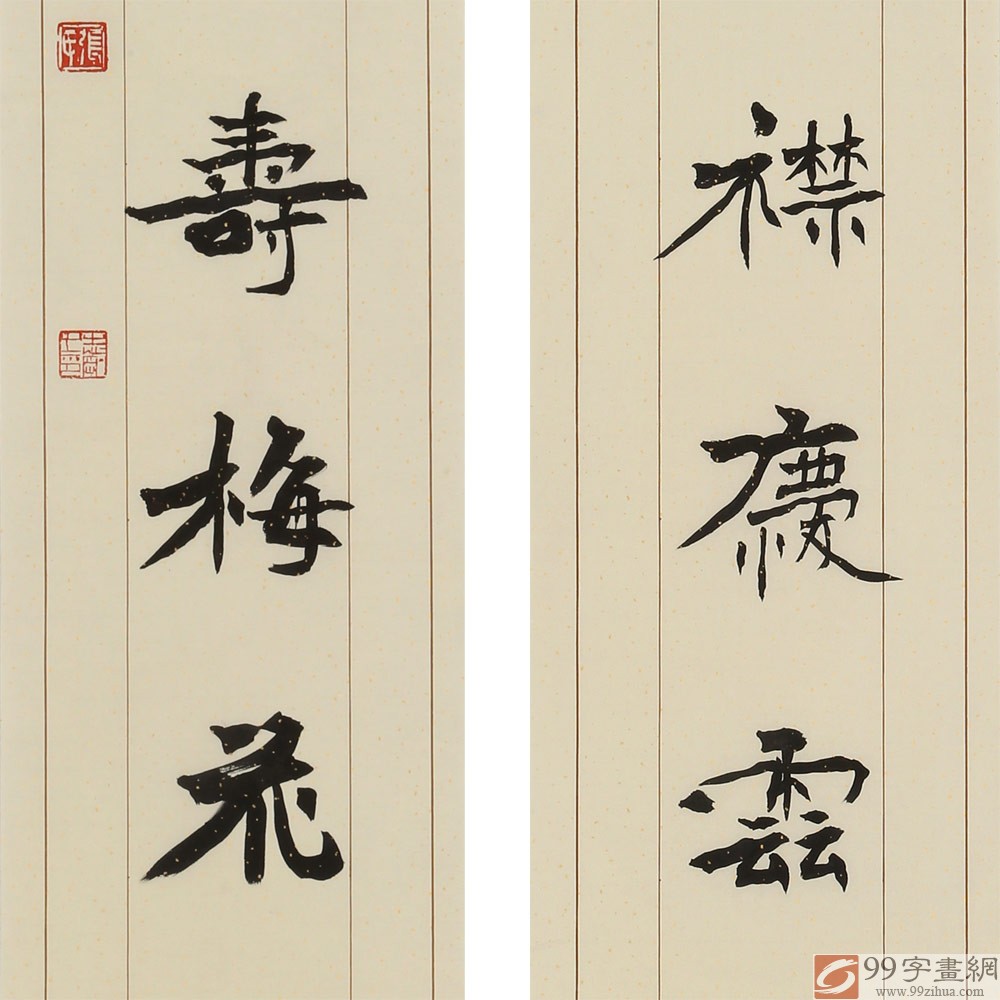 襟
慶
雲
壽
梅
花
99字畫網
www.99zihua.com